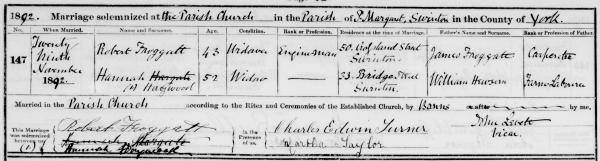 1892. Marriage solemnized at the Parish Church in the Parish of S. Margaret, Swinton in the County of York.
No. When Married. Name and Surname. Age. Condition. Rank or Profession. Residence at the time of Marriage. Father's Name and Surname. Rank or Profession of Father.
147 Twenty Ninth November 1892.
Robert Froggatt 43 Widower Engineman 50. Street Swinton James Froggatt Carpenter
Hannah Hargate 52 Widow 33. Bridge Swinton William Farm Labourer
(1) Haywood
Married in the Parish Church according to the Rites and Ceremonies of the Established Church, by Banns after by me,
This Marriage was solemnized between us, Robert Froggatt
Hannah Hargate
(1) Hannah Haywood
In the Presence of us, Charles Edwin Turner
Martha Taylor
John Levett
Vicar.